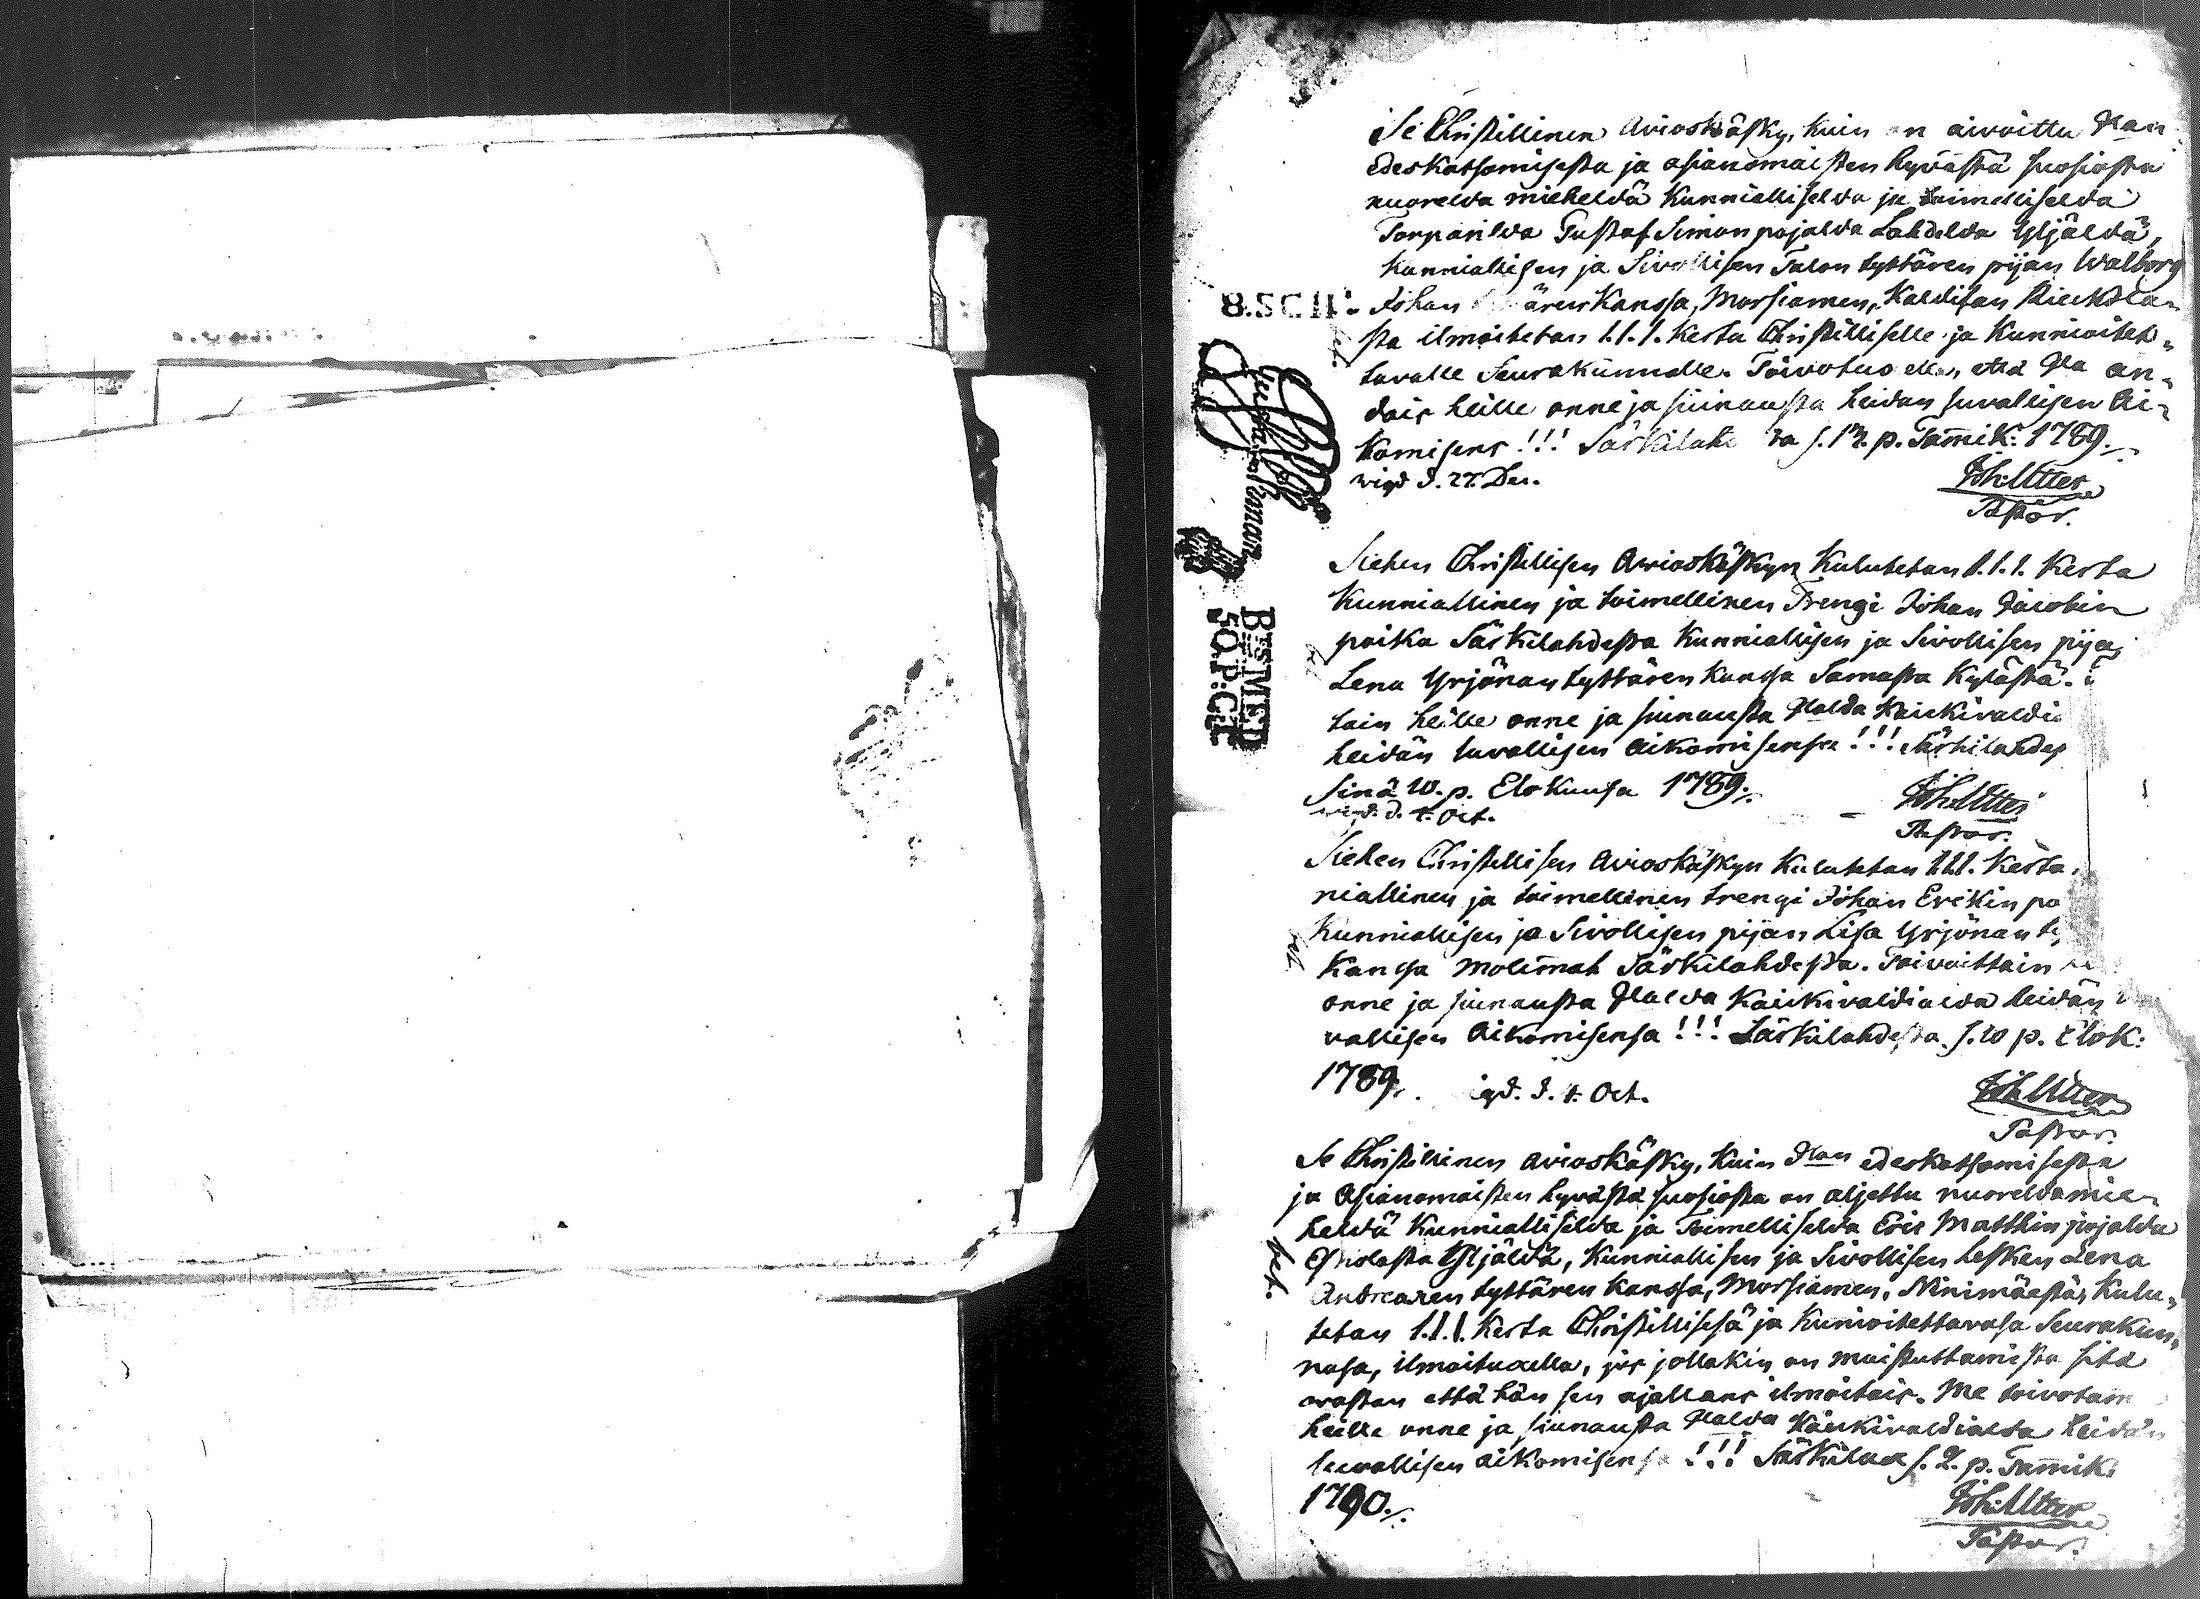 Se Christillinen Avioskäsky, kuin on aivoittu Hlan
edeskatsomisesta ja asianomaisten hyvästä suosiosta
nuorelda mieheldä Kunnialliselda ja toimelliselda
Torparilda Gustaf Simon pojalda Lahdelda Yljäldä,
Kunniallisen ja Sivollisen Talon tyttären pijan Walborg
Johan ärenkanssa, Morsiamen,
sta ilmoitetan 1.1.1. Kerta Christilliselle ja Kunnioitet„
tavalle Seurakunnalle. Toivotuxella, että Hla an„
dais heille onne ja siunausta heidän luvallisen Ai„
komisens!!! Särkilahe sa s. 13. p. Tammik: 1789.
wigd d. 27. Dec.
Joh: Utter
Pastor.
8.SCH:
BES.MED
50.P:CT.
Siehen Christillisen Avioskäskyn Kulutetan 1.1.1. Kerta
Kunniallinen ja toimellinen Trengi Johan Jacobin
poika Särkilahdesta Kunniallisen ja Sivollisen pijan
Lena Yrjönän tyttären Kanssa Samasta Kylästä.
tain heille onne ja siunausta Hlalda Kaickivaldia
heidän luvallisen Aikomisensa!!! Särkilahdes
Sinä 10. p. Elokuusa 1789.
wigd. d. 4. Oct.
Joh: Utter
Pastor.
Siehen Christillisen Avioskäskyn Kulutetan 1.1.1. Kerta
niallinen ja toimellinen trengi Johan Erikin po
Kunniallisen ja Sivollisen pijan Lisa Yrjönän ty
Kanssa Molemmat Särkilahdesta. Toivoittain
onne ja siunausta Hlalda Kaickivaldialda heidän
vallisen Aikomisensa!!! Särkilahdesta s. 10 p. Elok:
1789. igd. d. 4. Oct.
Joh: Utter
Pastor.
Se Christillinen Avioskäsky, Kuin Hlan edeskatsomisesta
ja Asianomaisten hyvästä suosiosta on aljettu nuorelda mie„
heldä Kunnialliselda ja Toimelliselda Eric Matthin pojalda
Yljäldä, Kunniallisen ja Sivollisen lesken Lena
Andreaxen tyttären kanssa, Morsiamen, Ninimäestä, Kulu„
tetan 1.1.1. Kerta Christillisesä ja Kunnioitettavasa Seurakun„
nasa, ilmoituxella, jos jollakin on muistuttamista sitä
wastan että hän sen ajallans ilmoitais. Me toivotam
heille onne ja siunausta Hlalda Kaickivaldialda heidän
luvallisen aikomisensa!!! Särkilax s. 2. p. Tammik:
1790.
bet.
Joh: Utter
Pastor.